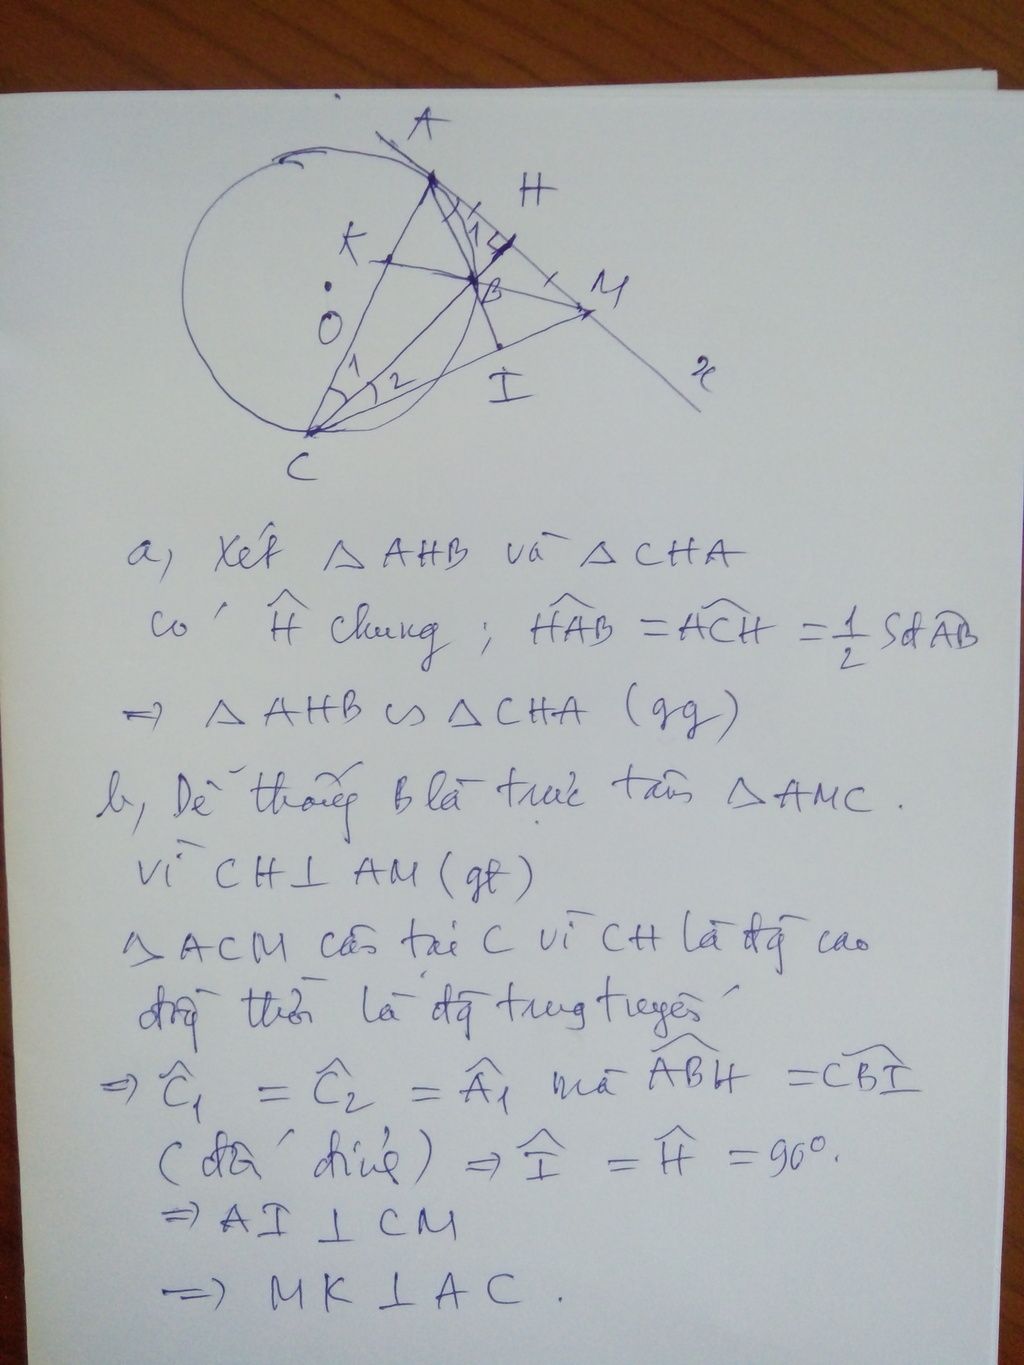 A
H
K
1
B
M
O
x
1
2
I
C
a, Xét △ AHB và △ CHA
có Ĥ chung ; HÂB = AĈH = 1/2 Sđ AB
=> △ AHB ∽ △ CHA (gg)
b, Dễ thấy B là trực tâm △ AMC .
vì CH ⊥ AM (gt)
△ ACM cân tại C vì CH là đg cao
đồng thời là đg trung tuyến
=> Ĉ₁ = Ĉ₂ = Â₁ mà AB̂H = CB̂I
(đối đỉnh) => Î = Ĥ = 90°.
=> AI ⊥ CM
=> MK ⊥ AC .